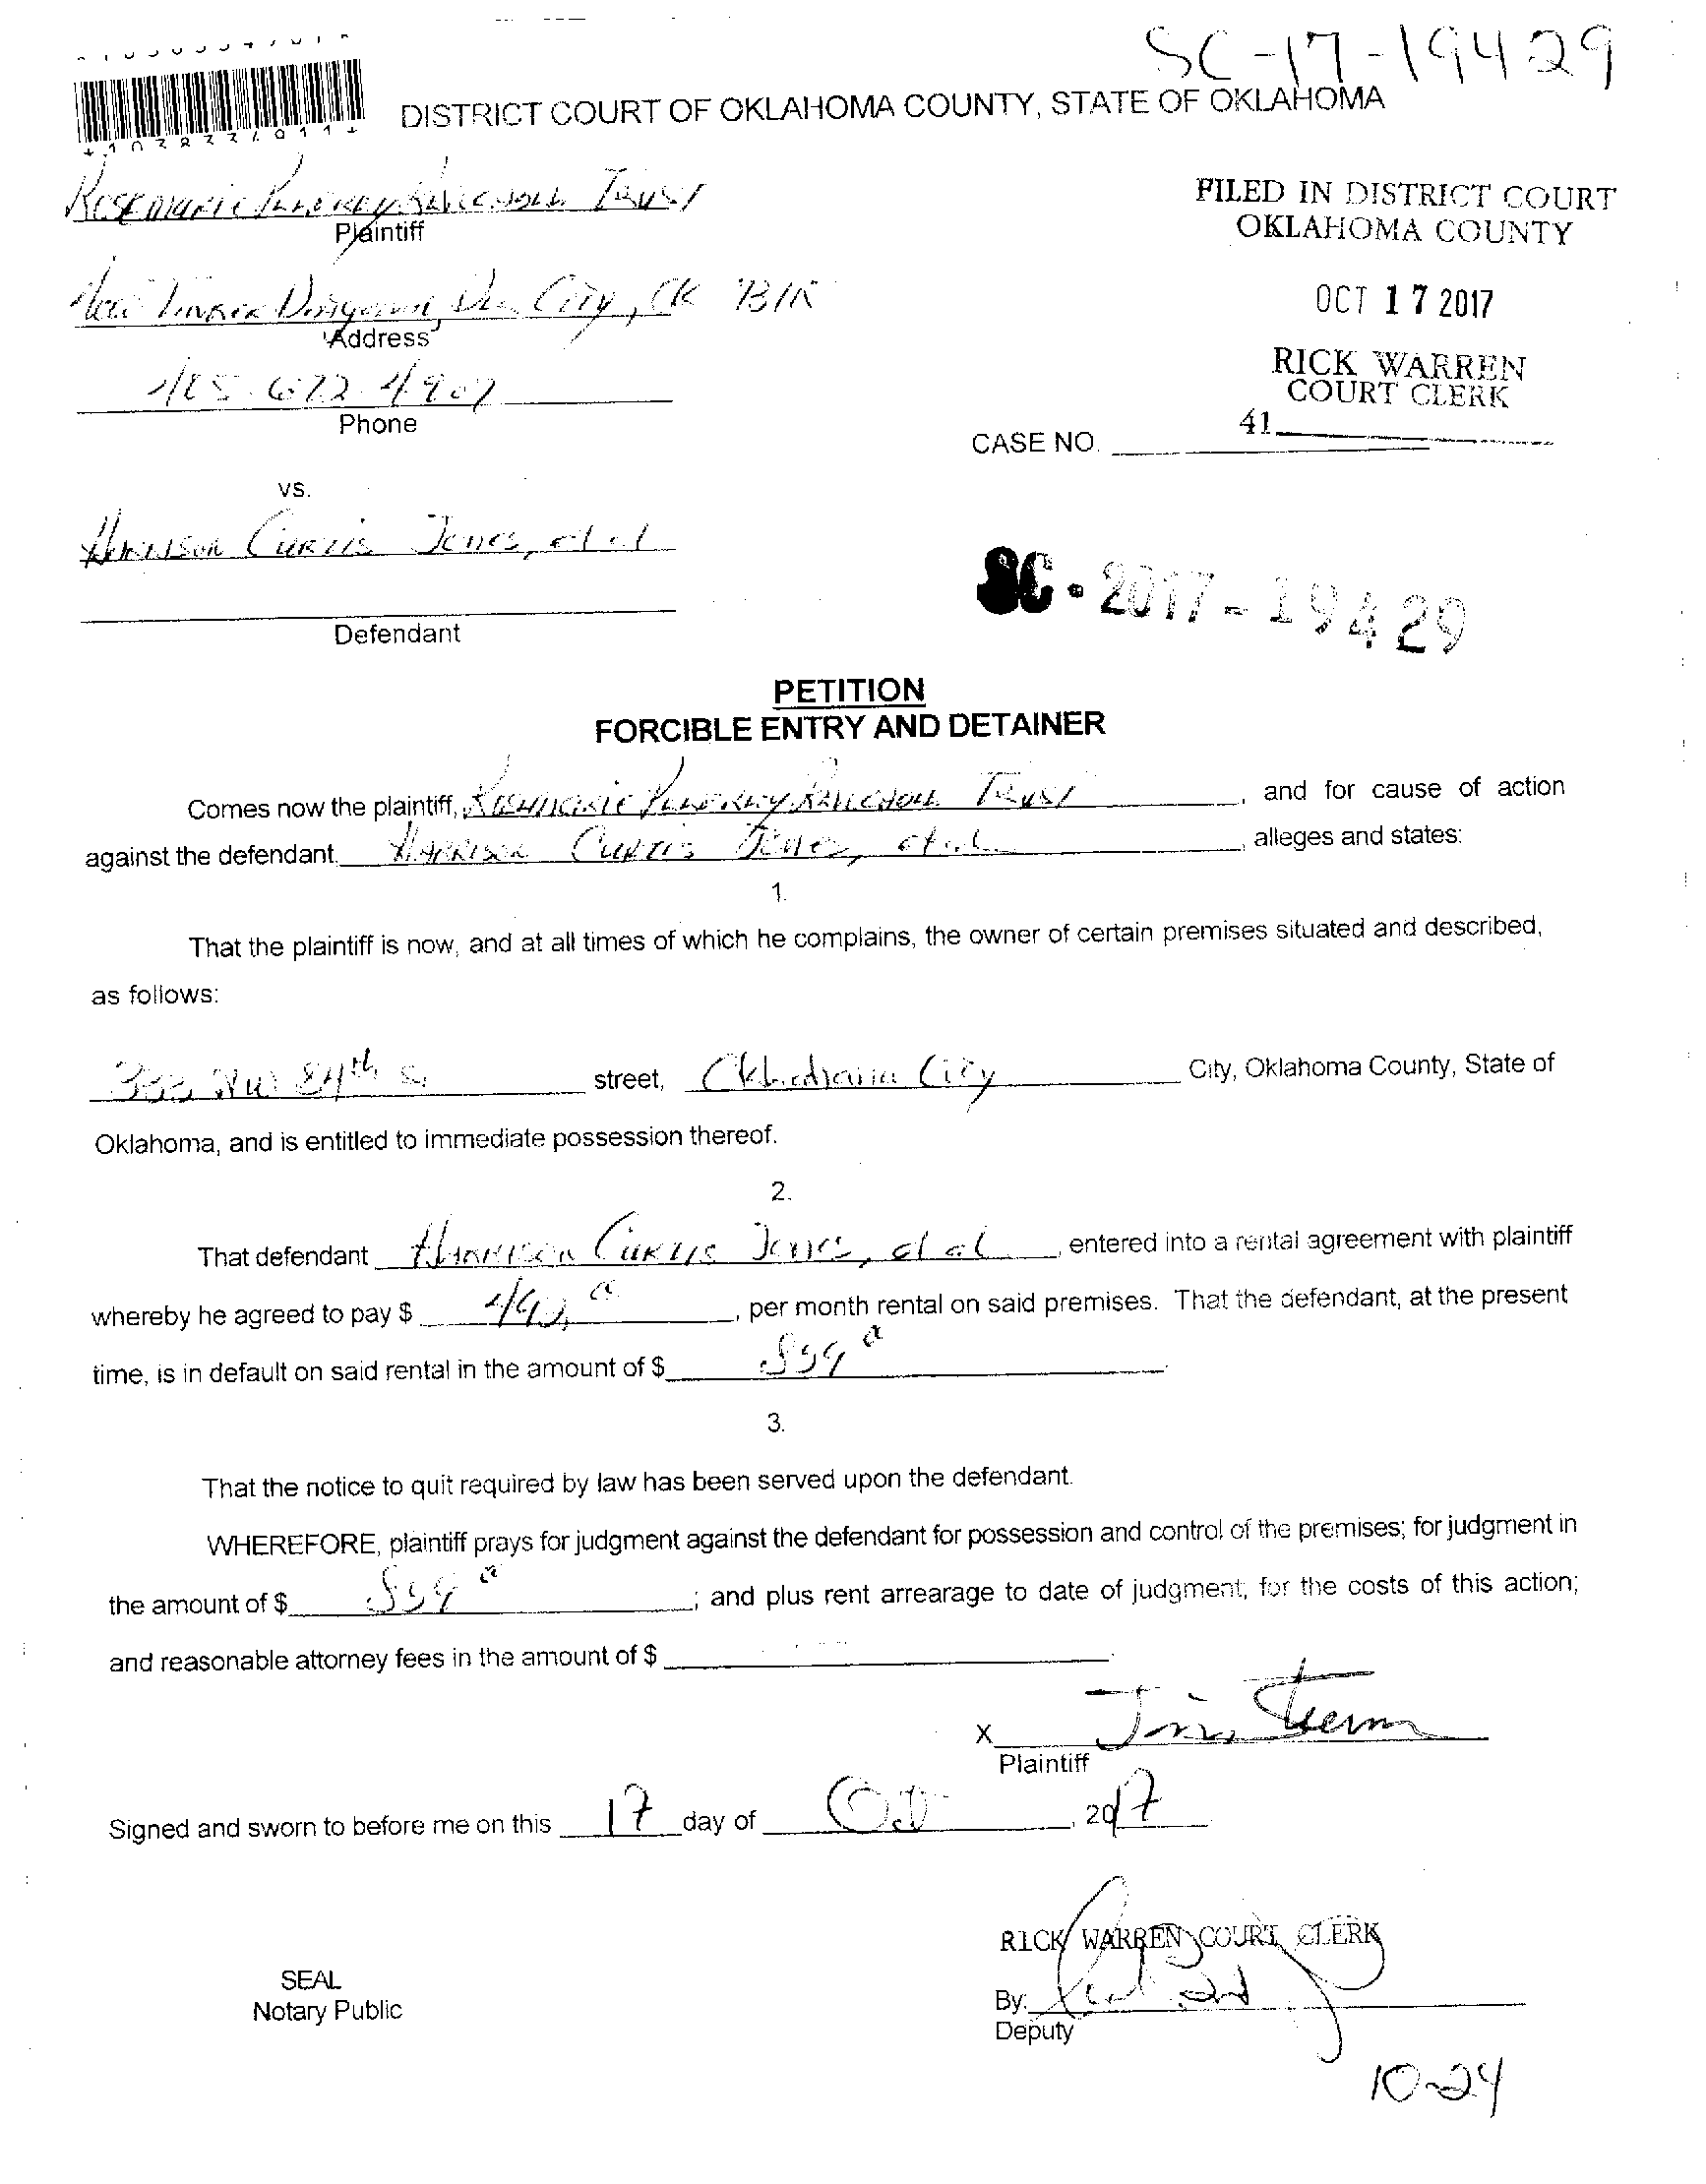 SC-17-19429
DISTRICT COURT OF OKLAHOMA COUNTY, STATE OF OKLAHOMA
Trust
Plaintiff
City, OK
Address
405-672-4907
Phone
FILED IN DISTRICT COURT
OKLAHOMA COUNTY
OCT 17 2017
RICK WARREN
COURT CLERK
41
CASE NO.
vs.
Harrison Curtis Jones, et al
Defendant
SC-2017-19429
PETITION
FORCIBLE ENTRY AND DETAINER
Comes now the plaintiff, Trust, and for cause of action
against the defendant. Harrison Curtis Jones, et al, alleges and states:
1.
That the plaintiff is now, and at all times of which he complains, the owner of certain premises situated and described,
as follows:
NW 84th St street, Oklahoma City City, Oklahoma County, State of
Oklahoma, and is entitled to immediate possession thereof.
2.
That defendant Harrison Curtis Jones, et al, entered into a rental agreement with plaintiff
whereby he agreed to pay $, per month rental on said premises. That the defendant, at the present
time, is in default on said rental in the amount of $.
3.
That the notice to quit required by law has been served upon the defendant.
WHEREFORE, plaintiff prays for judgment against the defendant for possession and control of the premises; for judgment in
the amount of $; and plus rent arrearage to date of judgment; for the costs of this action;
and reasonable attorney fees in the amount of $
X
Plaintiff
Signed and sworn to before me on this 17 day of Oct, 2017
RICK WARREN COURT CLERK
SEAL
Notary Public
By:
Deputy
10-24